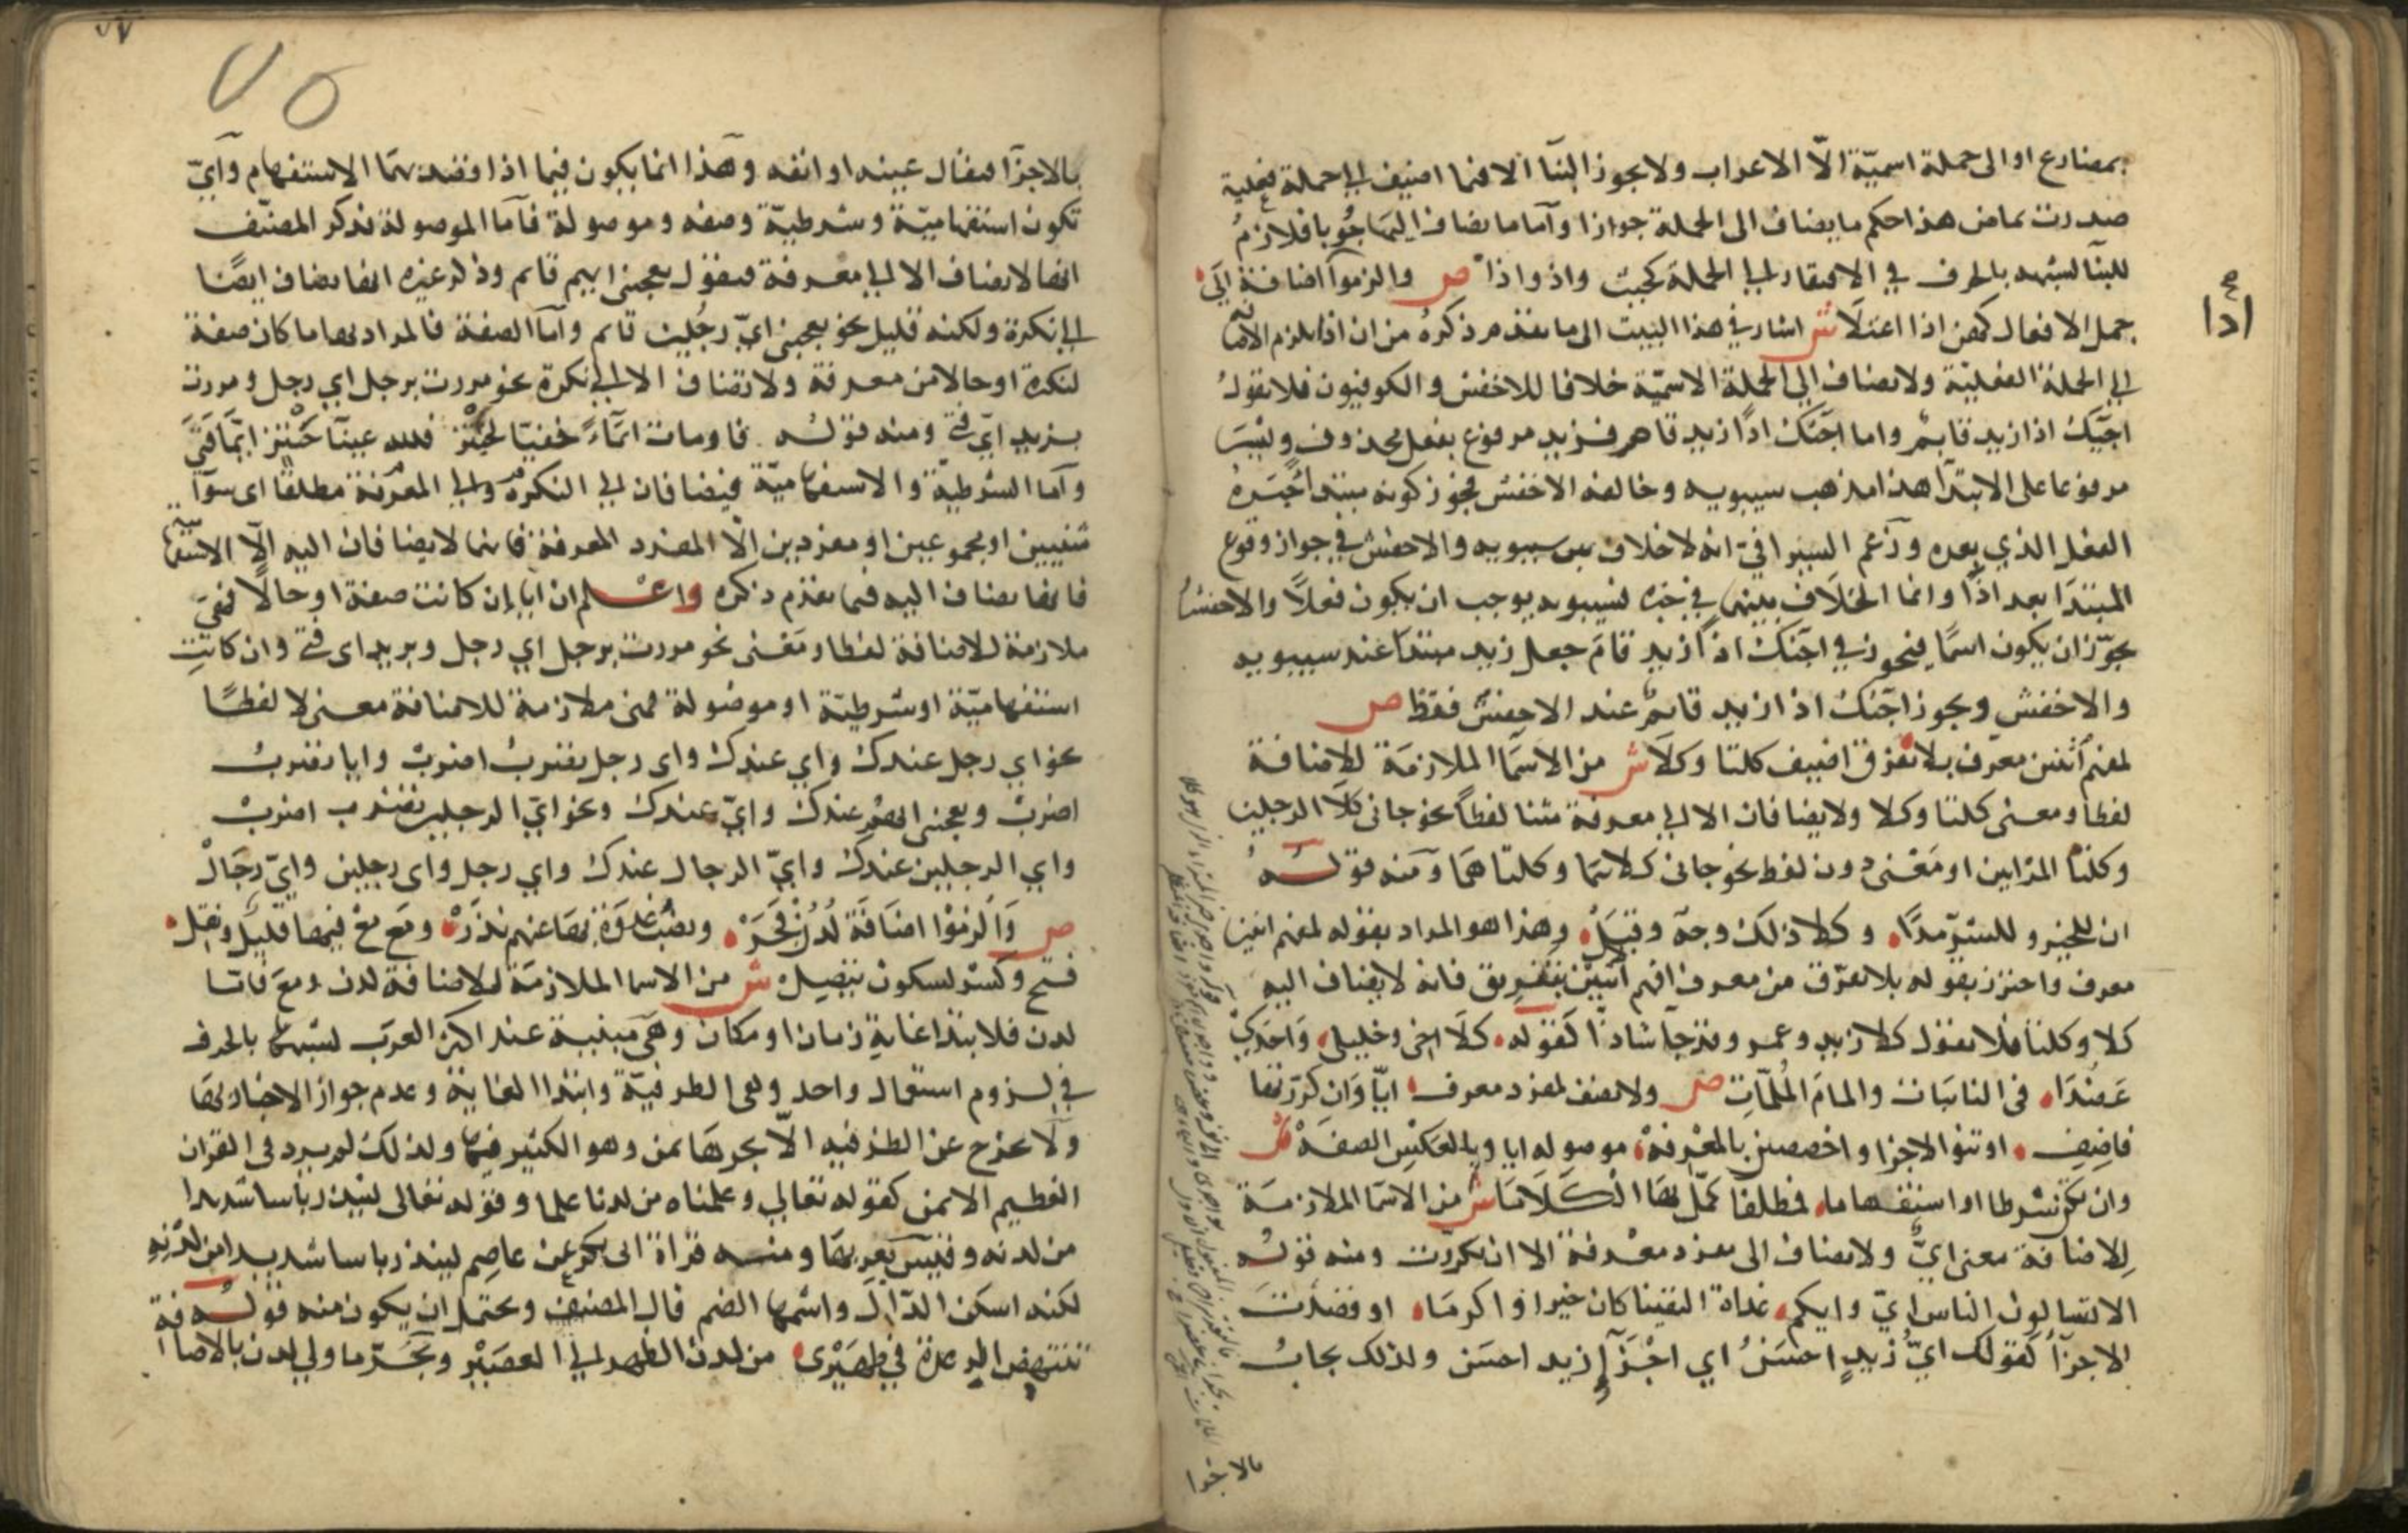 بمضارع او الى جملة اسمية الّا الاعراب ولا يجوز البنآ الا فيما اضيف الي جملة فعلية
صدرت بماض هذا حكم ما يضاف الى الجملة جوازا وآما ما يضاف اليها وجوبا فلازمُ
للبنآ لشبهه بالحرف في الافتقار الي الجملة كحيث واذ واذا ص والزموآ اضافة الَي
جمل الافعال كهن اذا اعتلَا ش اشار في هذا البيت الى ما تقدم ذكرهُ من ان اذا يلزم الاضافة
الي الجملة الفعليّة ولا تضاف الي الجملة الاسميّة خلافا للاخفش والكوفيون فلا تقولُ
اجيّكَ اذا زيد قايمٌ واما اجَئتك اذًا زيد قام فزيد مرفوع بفعل محذوف وليْسَ
مرفوعا على الابتدآ هذا مذهب سيبويه وخالفه الاخفش فجوز كونه مبتدا خبَرهُ
الفعل الذي بعده وزعم السيرافيّ انه لا خلاف بين سيبويه والاخفش في جواز وقوع
المبتدَا بعد اذًا وانما الخلَاف بينهما في خبره فسيبويه يوجب ان يكون فعلًا والاخفش
يجوّز ان يكون اسمًا فيجوز في اجئتك اذًا زيد قامَ جعل زيد مبتدا عند سيبويه
والاخفش ويجوز اجئتك اذا زيد قايمٌ عند الاخفش فقط ص
لمفهم اثنين معرف بلا تفرق اضيف كلتا وكلَا ش من الاسمَا الملازمَة للاضافة
لفظا ومعنى كلتا وكلا ولا يضافان الا الي معرفة مثنا لفظًا نحو جاني كلَا الرجلين
وكلتا المرَاتين او مَعْنى دون لفظ نحو جاني كلاهما وكلتاهمَا ومنه قولـــــهُ
ان للخير وللشرّ مدًا وكلا ذلك وجهَ وقبَلْ وهذا هو المراد بقوله لمفهم اثنين
معرف واحترز بقوله بلا تفرّق من معرف افهم اثنين بتفريق فانه لا يضاف اليه
كلا وكلتا فلا تقول كلا زيد وعمرو وقد جآ شاذًا كقوله كلَا اخي وخليلي وَاجدي
عَضُدَا في النائبات والمامَ المُلمّاتِ ص ولا تضف لمفرد معرف ايّا وَان كررتها
فاضِفِ او تنو الاجزا واخصصن بالمعْرفة موصوله ايا وبالعكسِ الصفهْ
وان تكن شرطا او استفهاما فمطلقا كمّل بها الْكَلَامَا ش من الاسمَا الملازمَة
للاضافة معنى ايٌّ ولا تضاف الى مفرد معْرفة الا ان تكررت ومنه قولـُه
الا تسالون الناس ايّ وايكم غداة التقينا كان خيرا واكرمَا او قصدت
الاجزآ كقولك ايُّ زيدٍ احسَنُ اي اجْزَآ زيد احسَن ولذلك يجابُ
بالاجزا
اذا
بالاجزآ فيقال عينه او انفه وهذا انما يكون فيما اذا قصد بهَا الاستفهام وآيّ
تكون استفهاميّة وشرطيّة وصفه وموصولة فآما الموصولة فذكر المصنّف
انها لا تضاف الا الي معرفة فتقول يعجبني ايهم قايم وذكر غيره انها تضاف ايضًا
الي نكرة ولكنه قليل نحو يعجبني ايّ رجُلين قايم وآما الصفة فالمراد بها ما كان صفة
لنكرة او حالا من معرفة ولا تضاف الا الي نكرة نحو مررت برجل اي رجل ومررت
بزيد ايّ فتى ومنه قولـُه فاومات ايمَآءً خفيّا لحَبْتَر فلله عينا حَبْتر ايّمَا فَتَى
وآما الشرطيّة والاستفهاميّة فيضافان الي النكرة والي المعْرفة مطلقًا اي سوآ
مثنيين او مجموعين او مفردين الّا المفرد المعرفة فانهما لا يضافان اليه الّا الاستفهامية
فانها تضاف اليه فيما تقدّم ذكره واعْــلم ان ايا ان كانت صفة او حالًا فهيَ
ملازمة للاضافة لفظا ومَعْنى نحو مررت برجل اي رجل وبزيد اي فتى وان كانتِ
استفهاميّة او شرطيّة او موصولة فهي ملازمة للاضافة معنى لا لفظًا
نحو اي رجل عندك واي عندك واي رجل تضربُ اضربْ وايا تضربْ
اضربْ ويعجبني ايهم عندك وايّ عندك ونحو ايّ الرجلين تضرب اضربْ
واي الرجلين عندك وايّ الرجال عندك واي رجل واي رجلين وايّ رجَالْ
ص وَالزمُوْا اضَافَة لَدُنْ فَجَرَّ ونصْبُ غدْوَةٍ بهَا عنهم نَدَرْ ومَع معْ فيها قليل ونقل
فتح وكسْر لسكون يتصِل ش من الاسما الملازمَة للاضافة لدن ومعَ فاما
لدن فلابتدا غاية زمان او مكان وهي مبنية عند اكثر العرَب لشبهها بالحرف
في لــزوم استعمال واحد وهي الظرفيّة وابتدا الغاية وعدم جواز الاخبار بهَا
ولَا تخرج عن الظرفيه الّا بجرهَا بمن وهو الكثير فيها ولذلك لم يرد في القران
العظيم الا بمن كقوله تعالي وعلمناه من لدنا علما وقوله تعالى لينذر باسا شديدا
من لدنه وقيسٌ تعربهَا ومنــه قراة ابي بكر عن عاصِم لينذر باسا شديدا من لدْنِهِ
لكنه اسكن الدّالَ واشمها الضم قال المصنف ويحتمل ان يكون منه قولـــُه
تنتهض الرعدة في ظهَيْري من لدن الظهر الي العصَيْرِ ويجَــرّ ما ولي لدن بالاضافة
٧٥